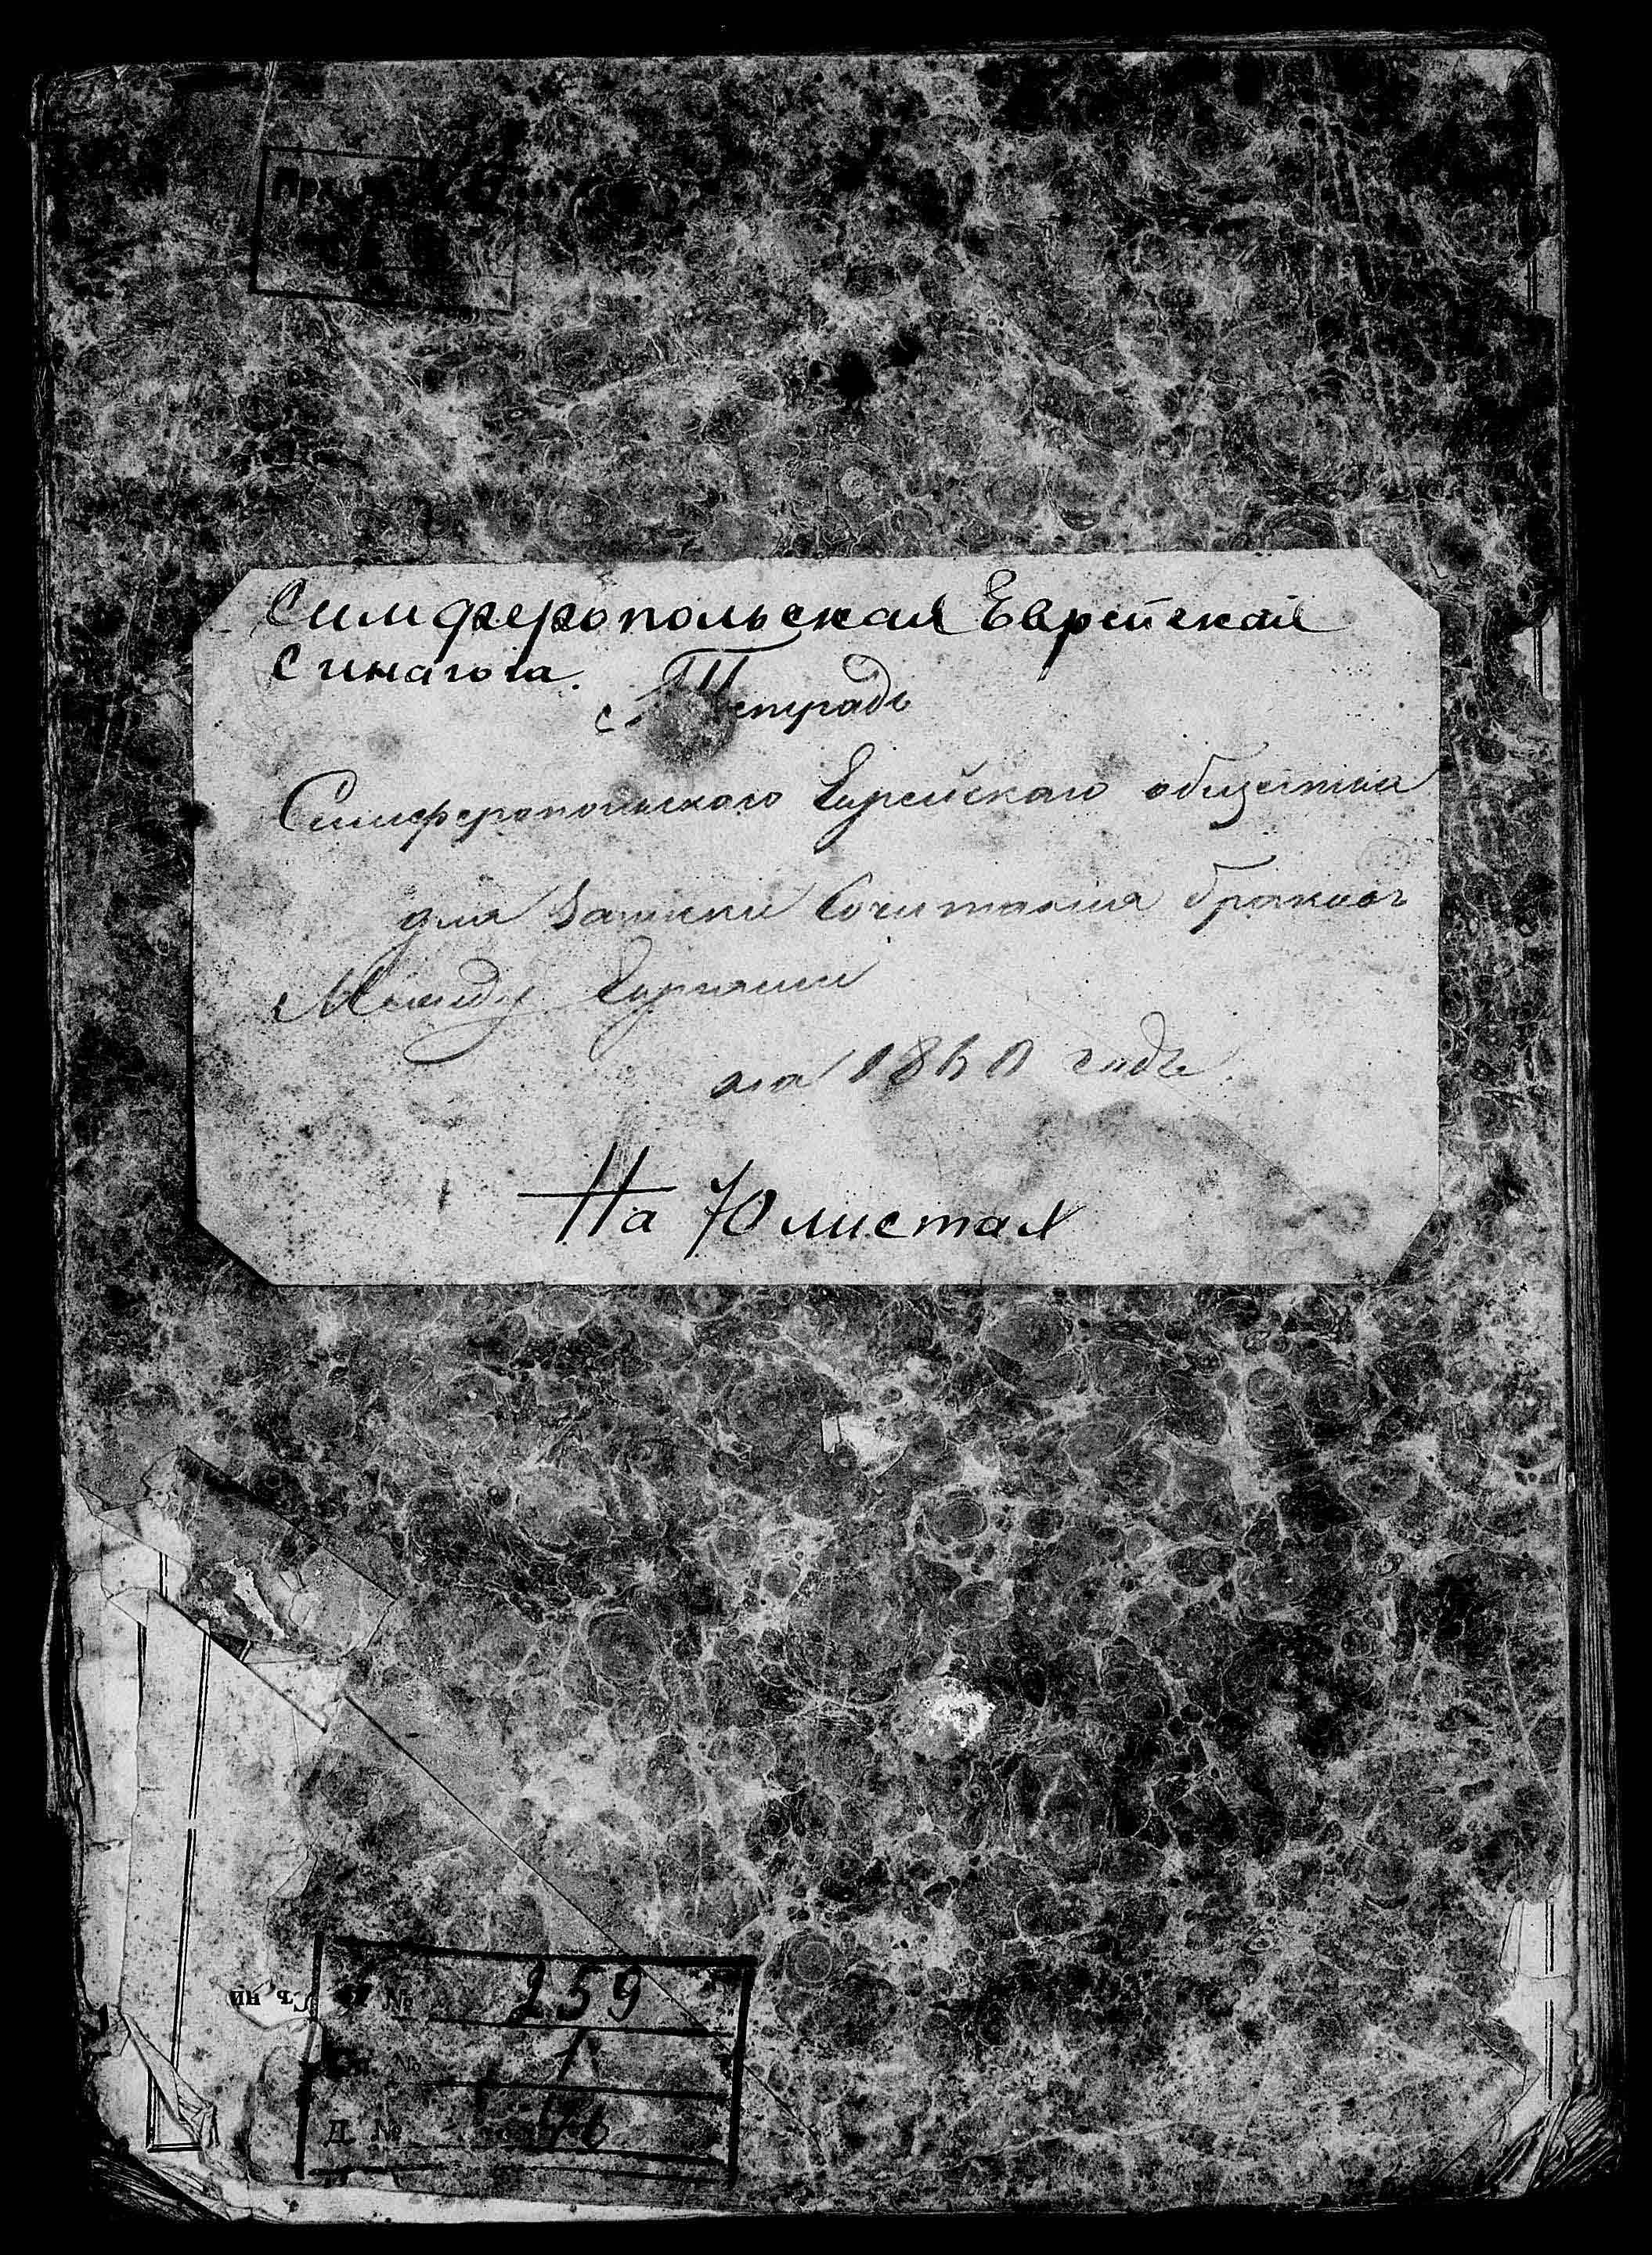 Симферопольская Еврейская
Синагога.
Тетрадь
Симферопольскаго Еврейскаго общества
для Записки Сочитания браков
Между Евреями
на 1860 годъ.
На 70 листах
№ 259
№ 1
Д. №